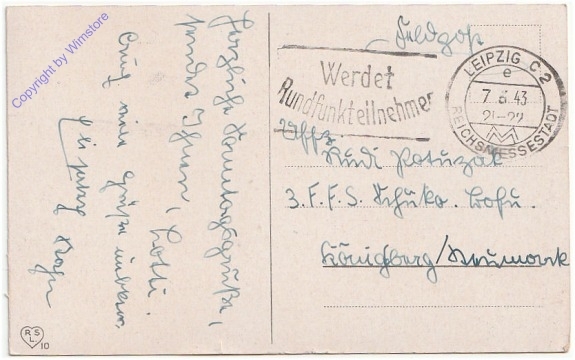 Copyright by Wimstore
Herzliche Sonntagsgrüße,
sendet Ihnen, Lotti.
Auch viele Grüße unbekannt
Feldpost
Werdet
Rundfunkteilnehmer
LEIPZIG C 2
e
7 6 43
21-22
REICHSMESSESTADT
Uffz.
Rudi Potuzak
3. F.F.S. Schuko. Bofu.
Königsberg/Neumark
RSL
10